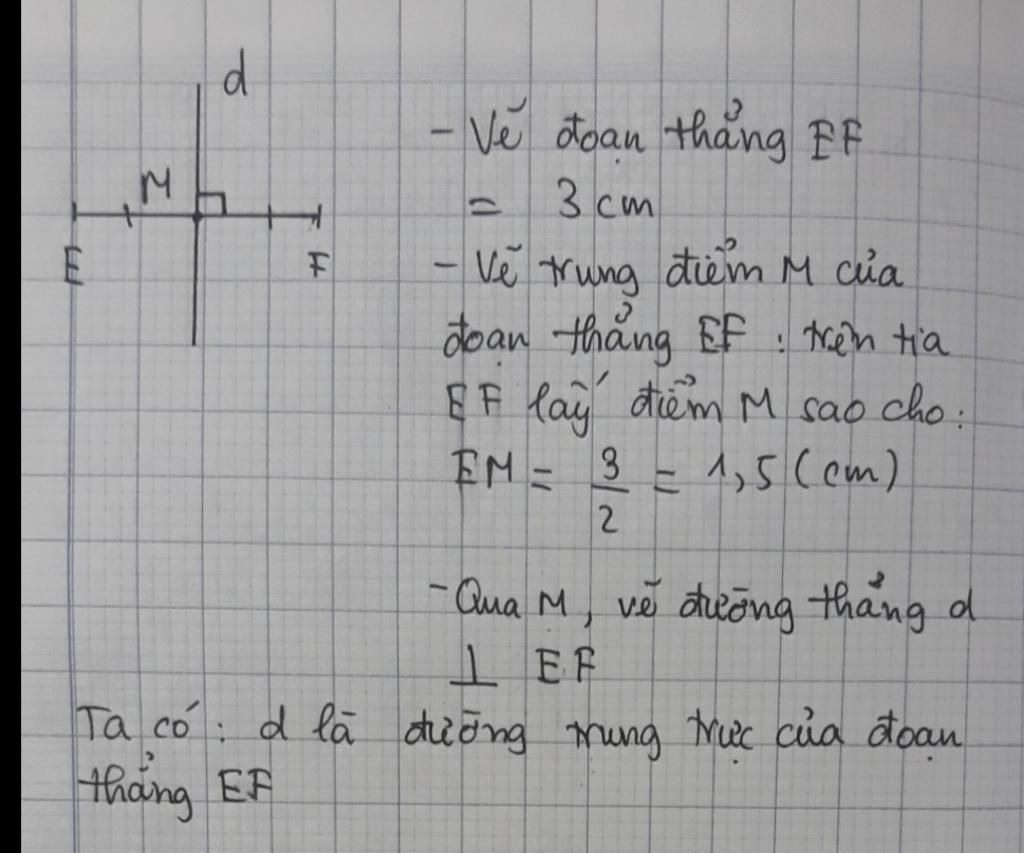 d
M
E F
- Vẽ đoạn thẳng EF
= 3 cm
- Vẽ trung điểm M của
đoạn thẳng EF : trên tia
EF lấy điểm M sao cho :
EM = 3/2 = 1,5 (cm)
- Qua M, vẽ đường thẳng d
⊥ EF
Ta có : d là đường trung trực của đoạn
thẳng EF